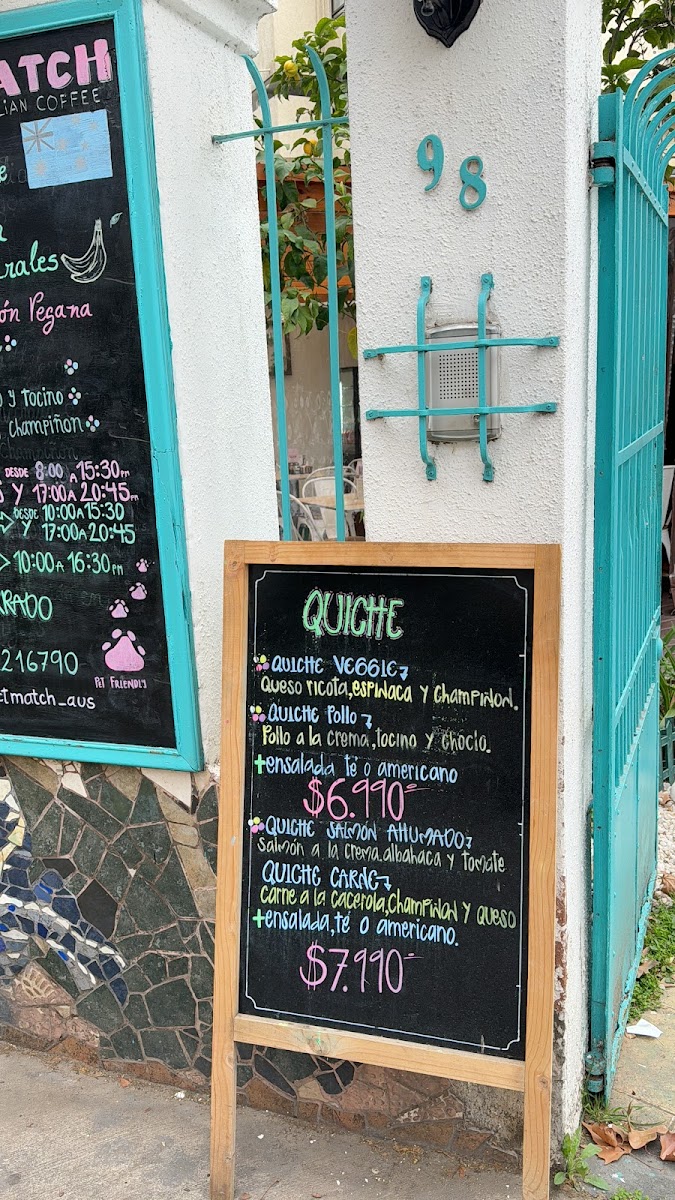 ATCH
LIAN COFFEE
rales
ón Vegana
y tocino
champiñon
DESDE 8:00 A 15:30 PM
Y 17:00 A 20:45 PM
DESDE 10:00 A 15:30
Y 17:00 A 20:45
10:00 A 16:30 PM
RADO
216790
PET FRIENDLY
etmatch_aus
98
QUICHE
QUICHE VEGGIE
Queso ricota, espinaca y champiñon.
QUICHE Pollo
Pollo a la crema, tocino y choclo.
+ensalada té o americano
$6.990
QUICHE SALMÓN AHUMADO
salmón a la crema.albahaca y tomate
QUICHE CARNE
carne a la cacerola, champiñon y queso
+ensalada, té o americano.
$7.990